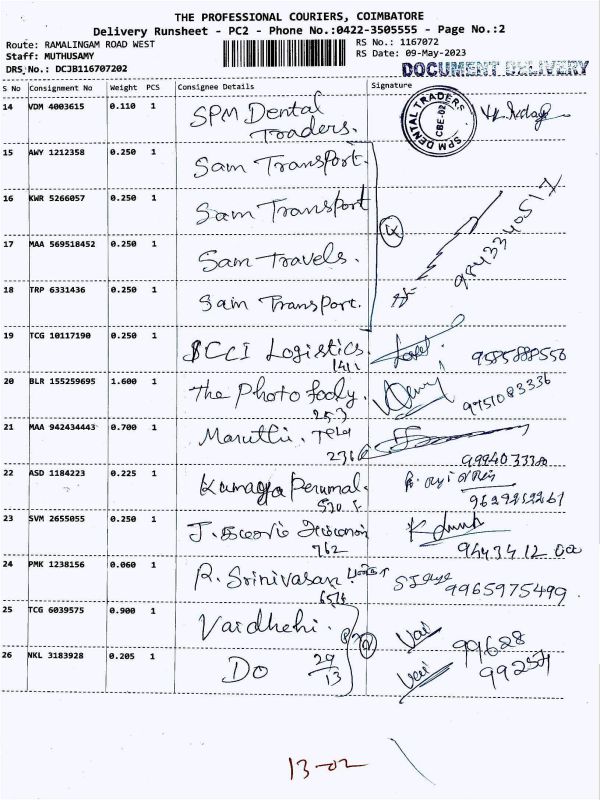 THE PROFESSIONAL COURIERS, COIMBATORE
Delivery Runsheet - PC2 - Phone No.:0422-3505555 - Page No.:2
Route: RAMALINGAM ROAD WEST
RS No.: 1167072
Staff: MUTHUSAMY
RS Date: 09-May-2023
DRS No.: DCJB116707202
DOCUMENT DELIVERY
S No Consignment No Weight PCS Consignee Details Signature
14 VDM 4003615 0.110 1 SPM Dental Traders.
SPM DENTAL TRADERS CBE-02
15 AWY 1212358 0.250 1 Sam Transport.
16 KWR 5266057 0.250 1 Sam Transport
17 MAA 569518452 0.250 1 Sam Travels.
9843340517
18 TRP 6331436 0.250 1 Sam Transport.
19 TCG 10117190 0.250 1 SCCI Logistics.
1411 9585888556
20 BLR 155259695 1.600 1 The Photo
253 9751083336
21 MAA 942434443 0.700 1 Maruthi.
2366
22 ASD 1184223 0.225 1 Perumal.
23 SVM 2655055 0.250 1 J.
762
24 PMK 1238156 0.060 1 R. Srinivasan
9965975499
25 TCG 6039575 0.900 1 Vaidhehi.
99628
26 NKL 3183928 0.205 1 Do 29/13
99254
13-02